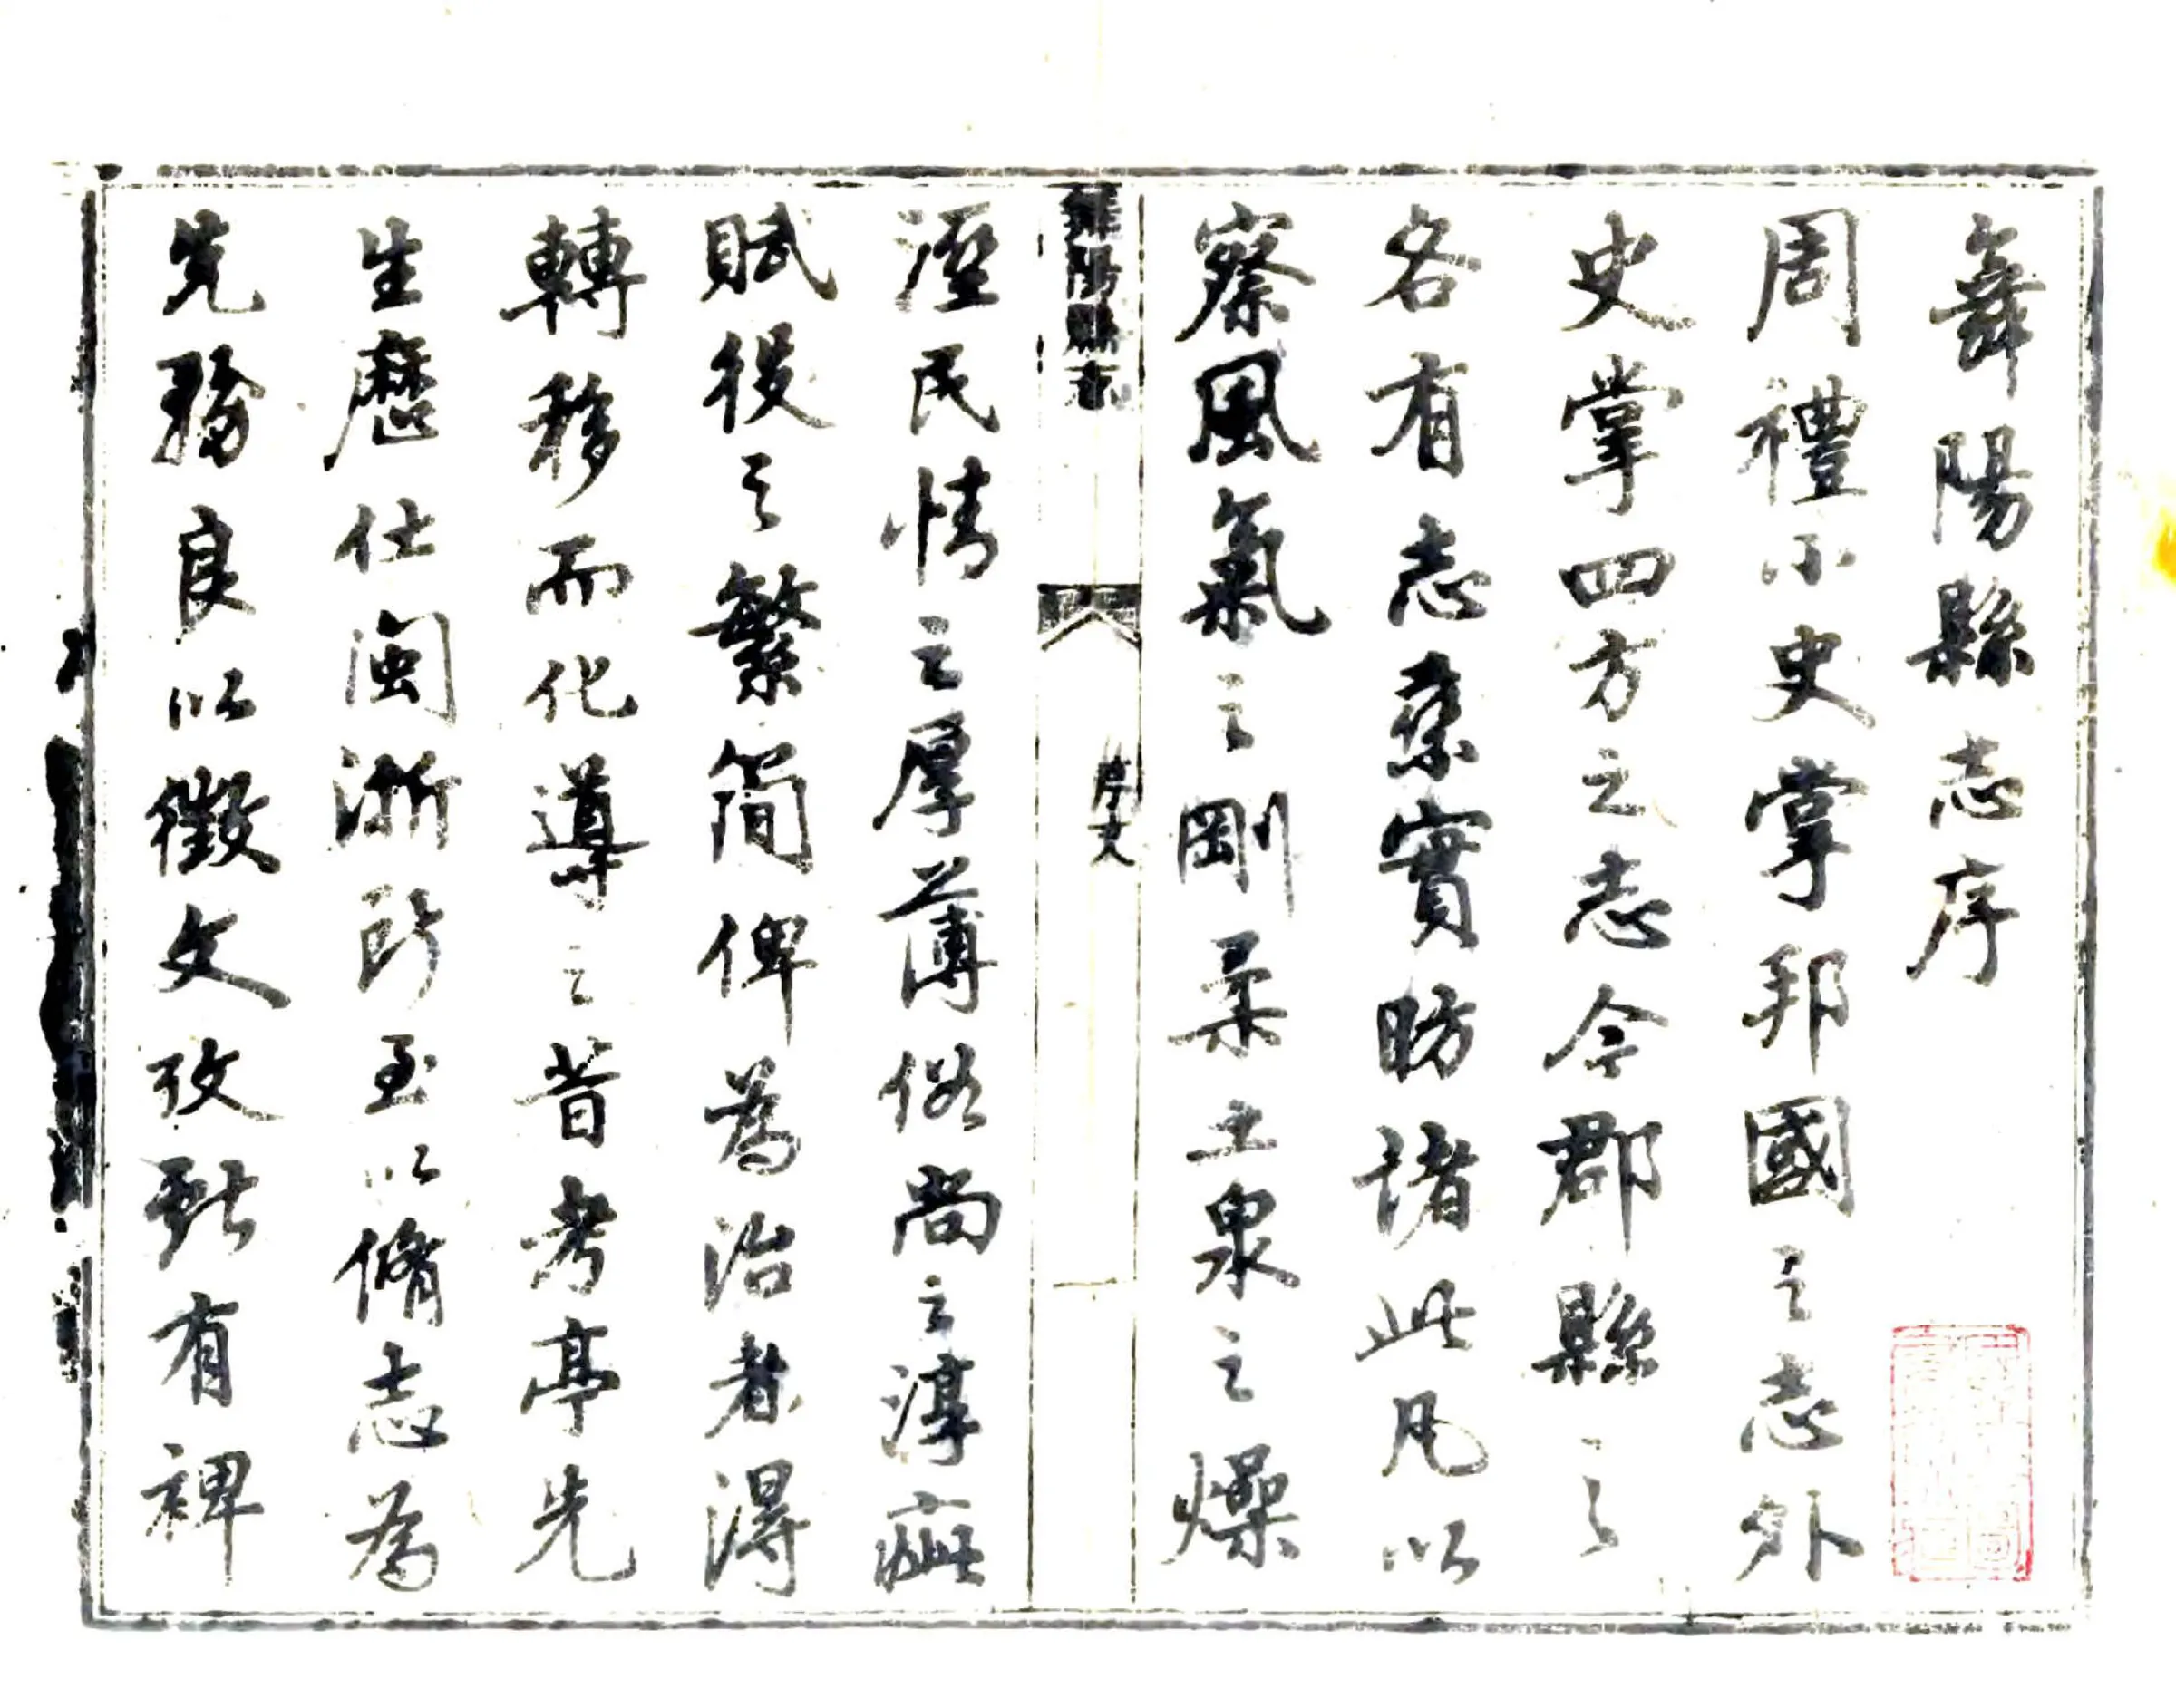 舞陽縣志序
周禮小史掌邦國之志外
史掌四方之志今郡縣之
各有志桒實昉諸此凡以
察風氣之剛柔土泉之燥
舞陽縣志
序文
溼民情之厚薄俗尚之淳疵
賦役之繁簡俾為治者得
轉移而化導之昔考亭先
生歷仕閩浙所至以脩志為
先務良以徵文攷獻有裨